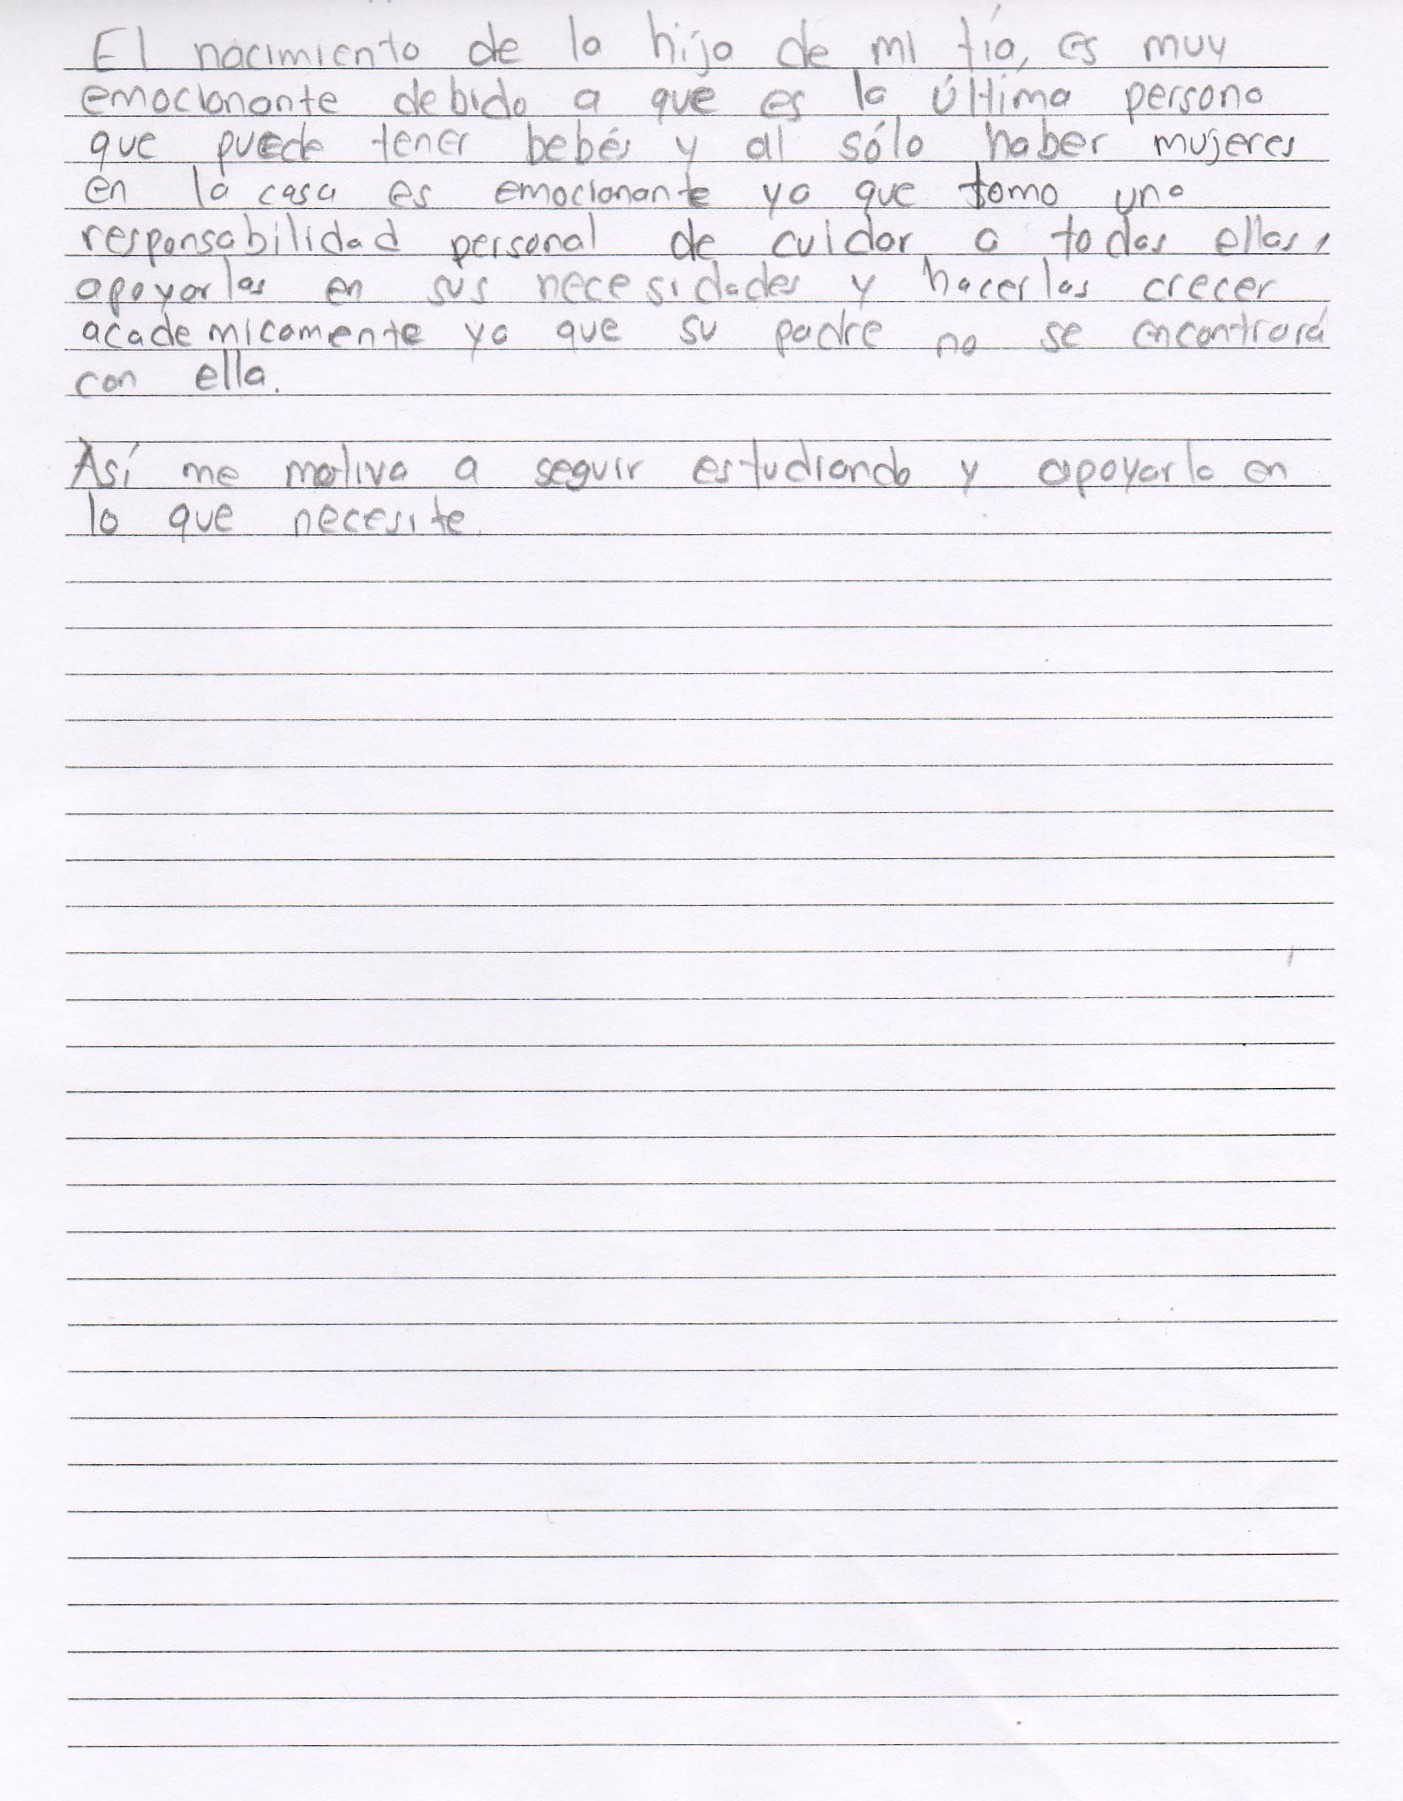 El nacimiento de la hija de mi tía, es muy
emocionante debido a que es la última persona
que puede tener bebés y al sólo haber mujeres
en la casa es emocionante ya que tomo una
responsabilidad personal de cuidar a todas ellas,
apoyarlas en sus necesidades y hacerlas crecer
academicamente ya que su padre no se encontrará
con ella.
Así me motiva a seguir estudiando y apoyarla en
lo que necesite.